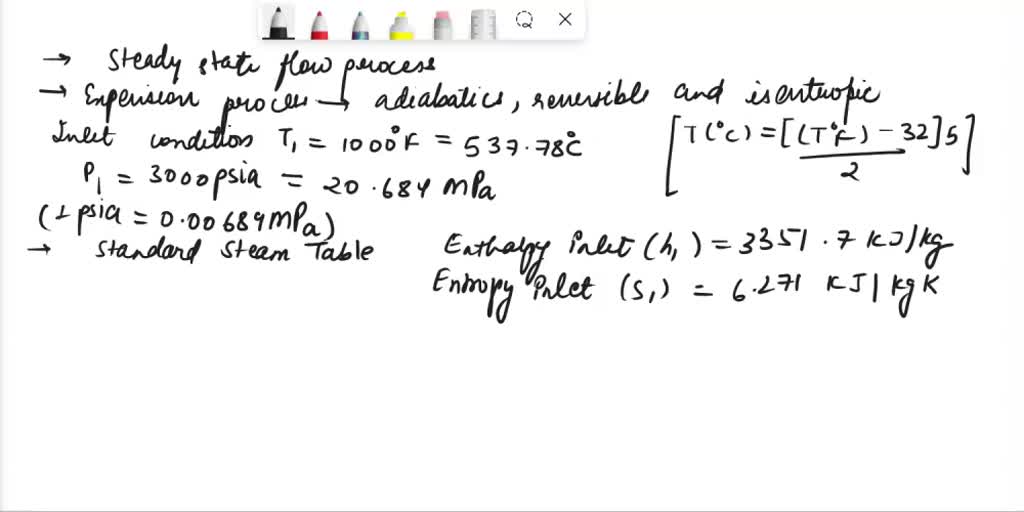 → Steady state flow process
→ Expension process → adiabatics, reversible and isentropic
Inlet condition T₁ = 1000°F = 537.78°C [T(°C) = [(T°F) - 32]5 / 2]
P₁ = 3000psia = 20.684 mPa
(1 psia = 0.00689mPa)
→ Standard Steam Table Enthalpy inlet (h₁) = 3351.7 KJ/kg
Entropy inlet (S₁) = 6.271 KJ/kgK